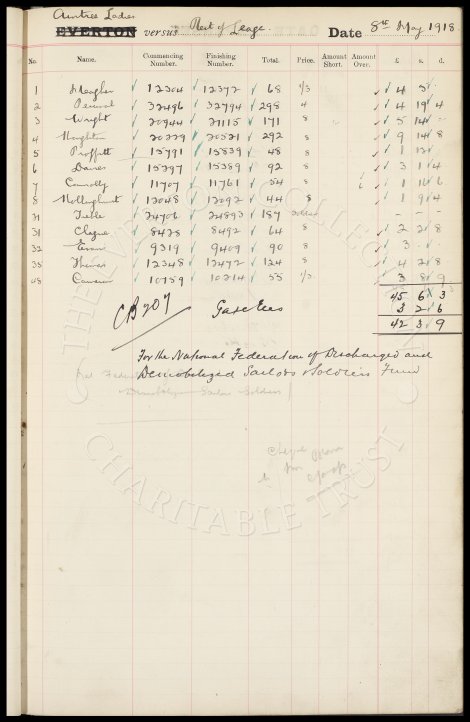 Aintree Ladies
EVERTON versus Rest of Leage. Date 8th May 1918.
No. Name. Commencing Number. Finishing Number. Total. Price. Amount Short. Amount Over. £ s. d.
1 Meagher 12304 12372 68 1/3 4 5 -
2 Percival 32496 32794 298 4 4 19 4
3 Wright 20944 21115 171 8 5 14 -
4 Houghton 20229 20521 292 8 9 14 8
5 Proffitt 15791 15839 48 8 1 12 -
6 Davies 15297 15389 92 8 3 1 4
7 Connolly 11707 11761 54 8 1 16 6
8 Hollinghurst 12048 12092 44 8 1 9 4
21 Treble 24706 24893 187 - - -
31 Clague 8428 8492 64 8 2 2 8
32 Evans 9319 9409 90 8 3 - -
35 Thomas 12348 12472 124 8 4 2 8
48 Cameron 10159 10214 55 1/3 3 8 9
45 6 3
CB 207 Gate Fees 3 2 6
42 3 9
For the National Federation of Discharged and
Demobilized Sailors & Soldiers Fund
THE EVERTON COLLECTION
CHARITABLE TRUST